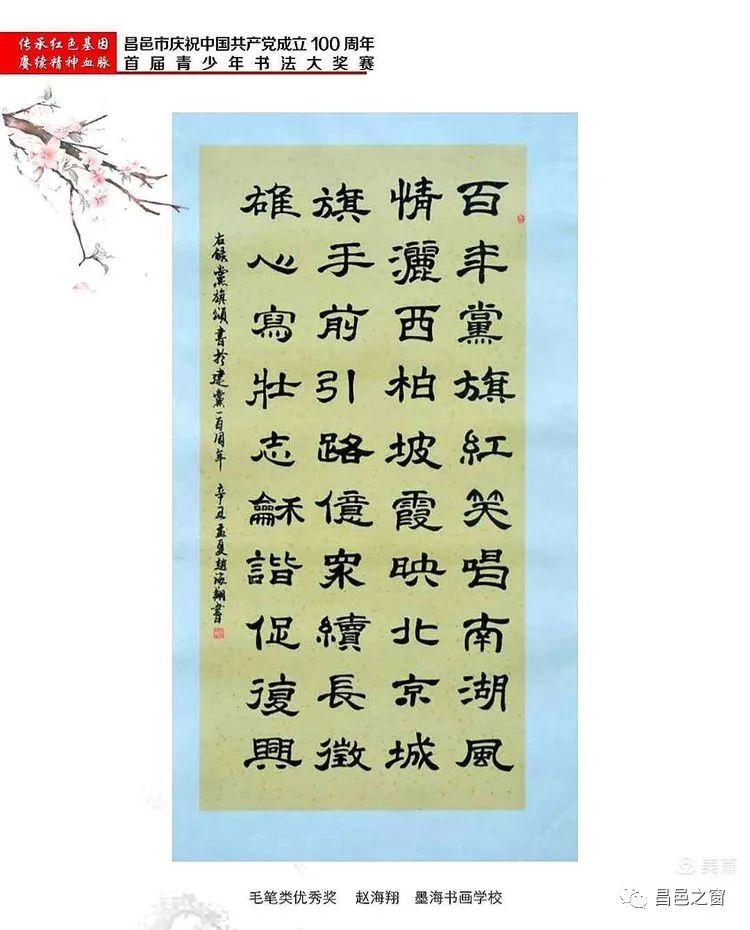 传承红色基因
赓续精神血脉
昌邑市庆祝中国共产党成立100周年
首届青少年书法大奖赛
百年黨旗紅笑唱南湖風
情灑西柏坡霞映北京城
旗手前引路億衆續長徵
雄心寫壯志龢諧促復興
右録黨旗頌書於建黨一百周年 辛丑孟夏趙海翔書
毛笔类优秀奖 赵海翔 墨海书画学校
美篇
昌邑之窗